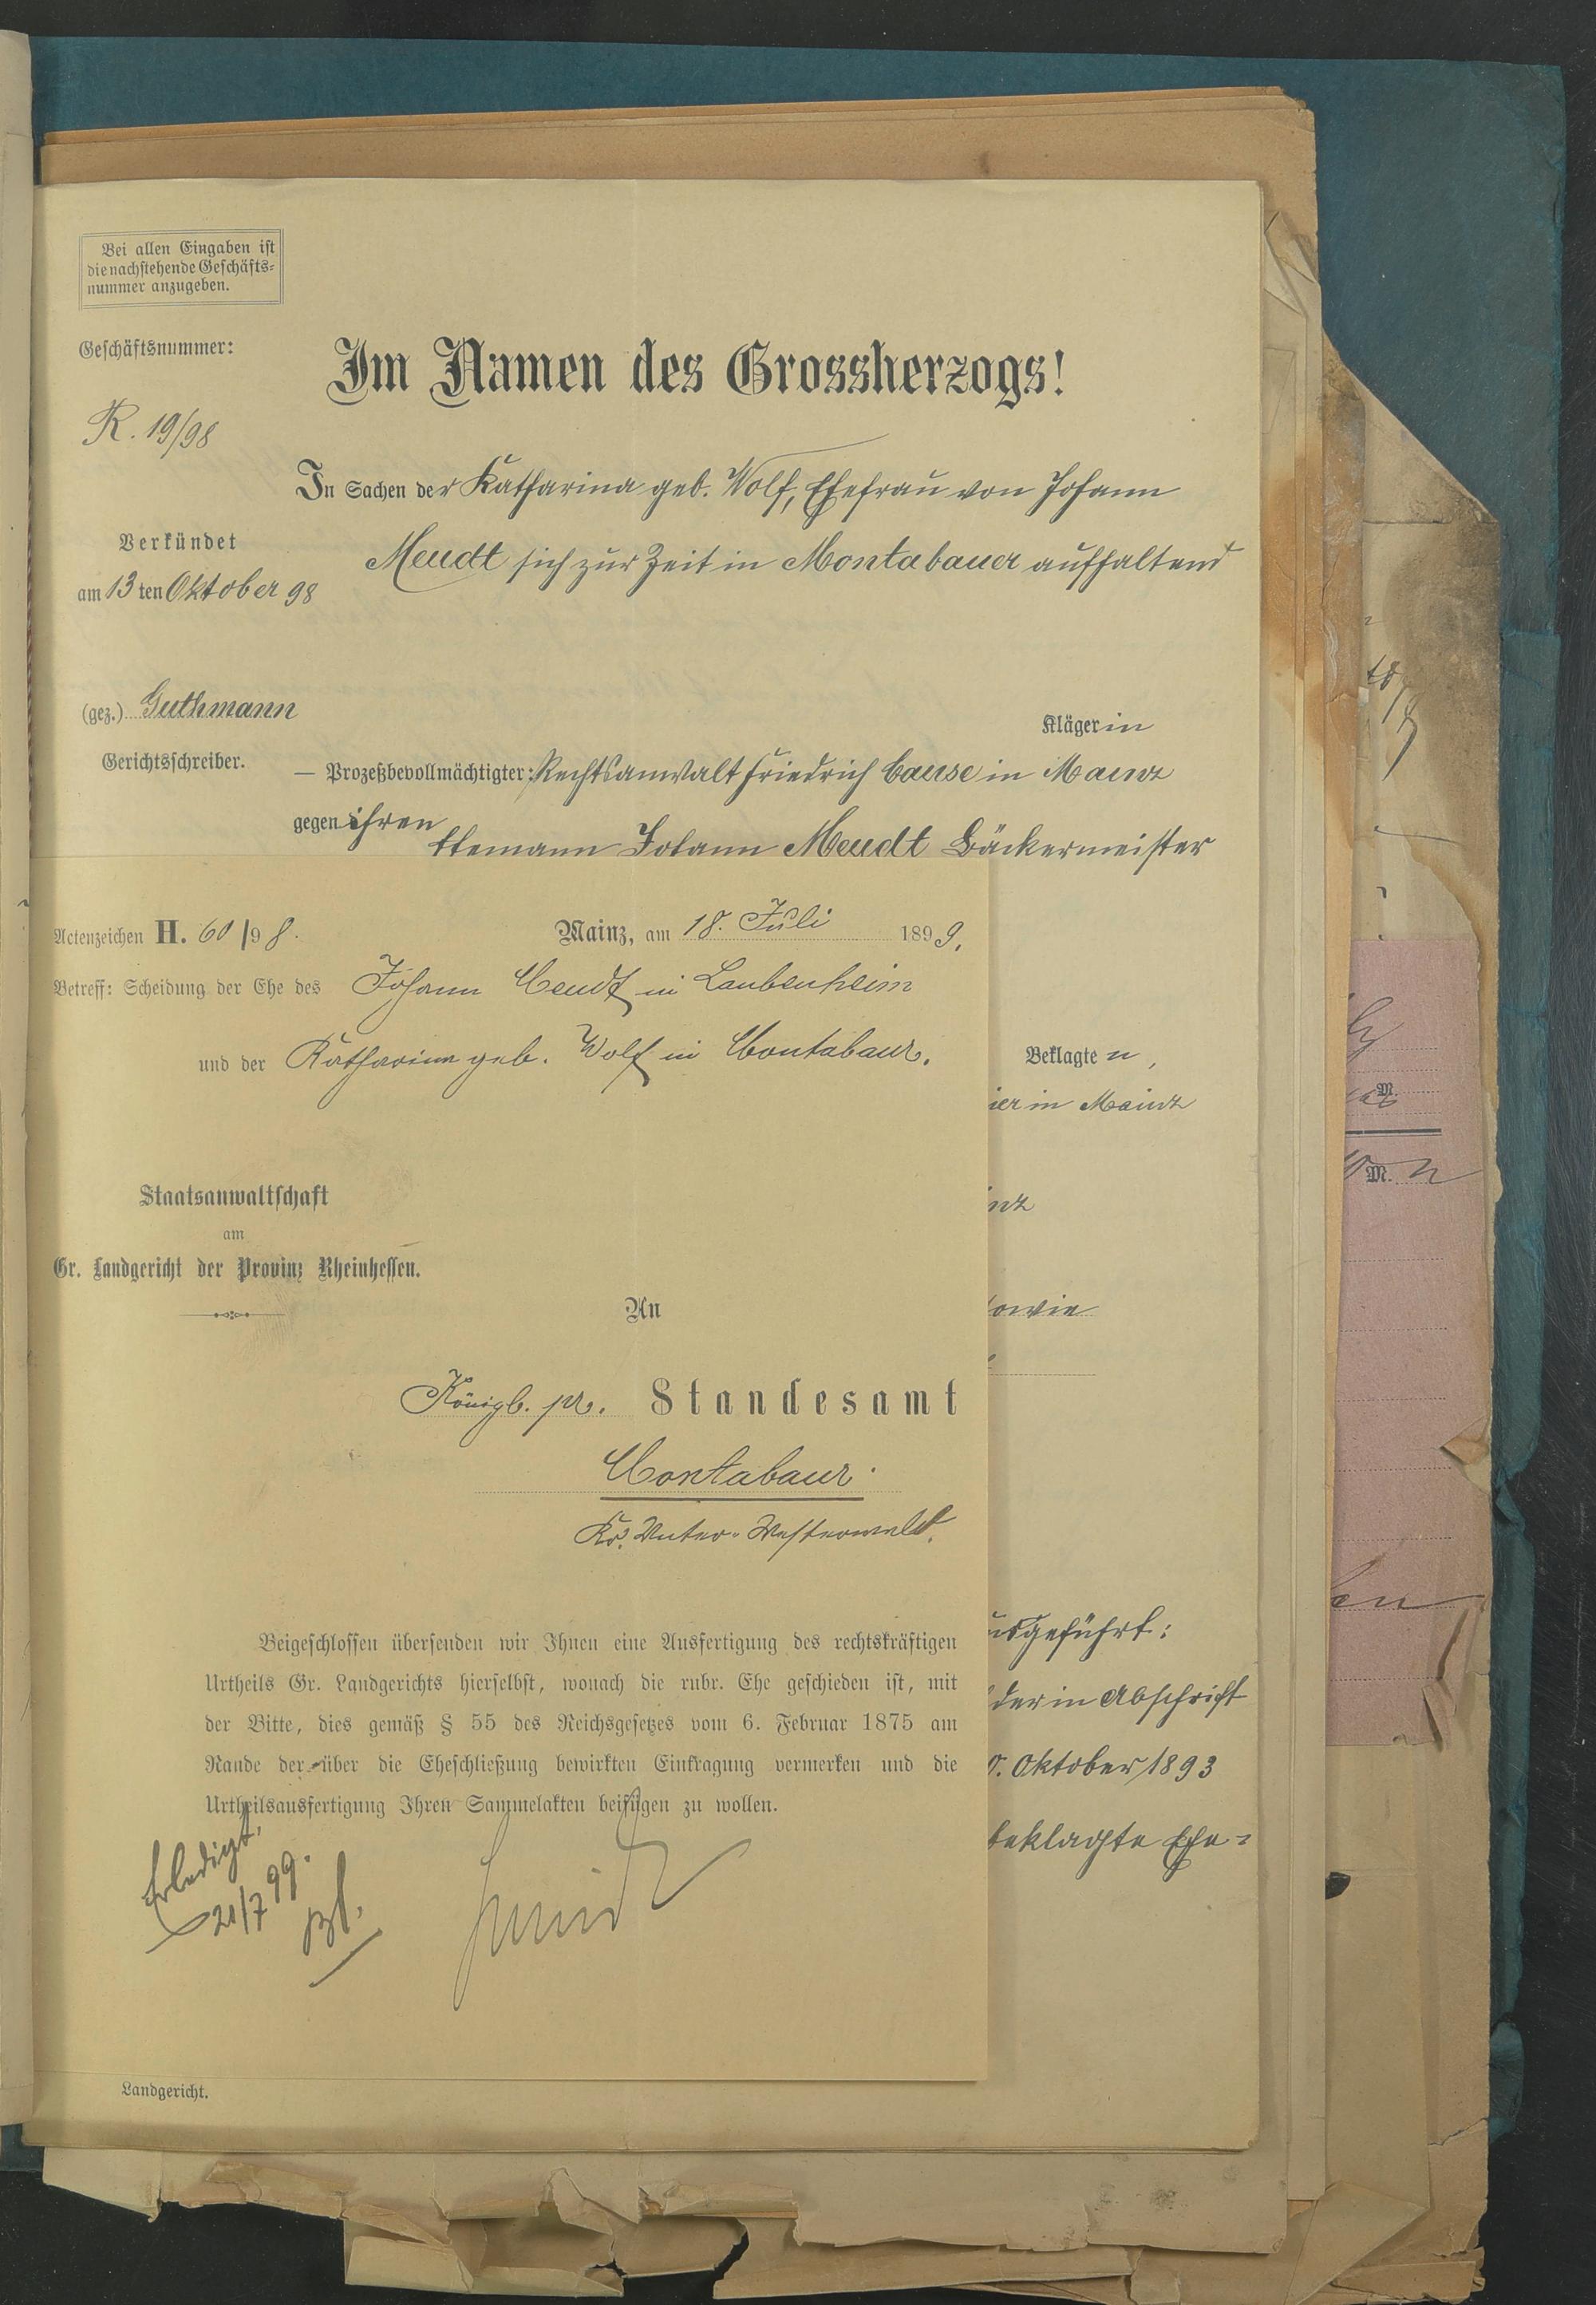 Bei allen Eingaben ist
die nachstehende Geschäfts-
nummer anzugeben.
Geschäftsnummer:
Im Namen des Grossherzogs!
R. 19/98
In Sachen der Katharina geb. Wolf, Ehefrau von Johann
Mendt sich zur Zeit in Montabauer aufhaltend
Verkündet
am 13 ten Oktober 98
(gez.) Guthmann
Gerichtsschreiber.
Klägerin
— Prozeßbevollmächtigter: Rechtsanwalt Friedrich in Mainz
gegen ihren
Ehemann Johann Mendt Bäckermeister
Actenzeichen H. 60/98.
Mainz, am 18. Juli 1899.
Betreff: Scheidung der Ehe des Johann Mendt in Laubenheim
und der Katharina geb. Wolf in Montabaur.
Beklagten,
ier in Mainz
nz
Staatsanwaltschaft
am
Gr. Landgericht der Provinz Rheinhessen.
An
owie
Königl. pr. Standesamt
Montabaur.
Kr. Unter-Westerwald.
usgeführt:
der in Abschrift
Oktober 1893
beklagte Ehe-
Beigeschlossen übersenden wir Ihnen eine Ausfertigung des rechtskräftigen
Urtheils Gr. Landgerichts hierselbst, wonach die rubr. Ehe geschieden ist, mit
der Bitte, dies gemäß § 55 des Reichsgesetzes vom 6. Februar 1875 am
Rande der über die Eheschließung bewirkten Eintragung vermerken und die
Urtheilsausfertigung Ihren Sammelakten beifügen zu wollen.
Erledigt.
21/7 99.
Landgericht.
M.
M.